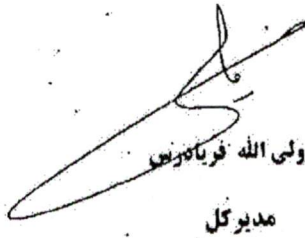 ولی الله فریادرس
مدیر کل